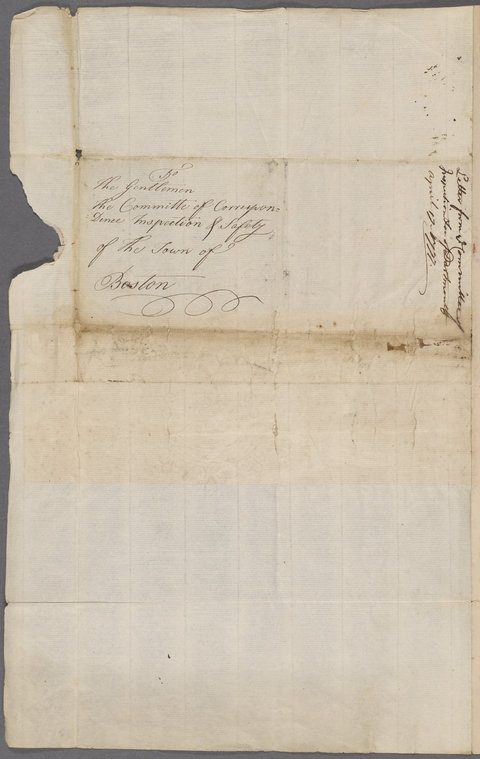 To
The Gentlemen
the Committe of Correspon-
Dence Inspection & Safety
of the Town of
Boston
Letter from Committee of
Inspection &c of Dartmouth
April 17. 1777